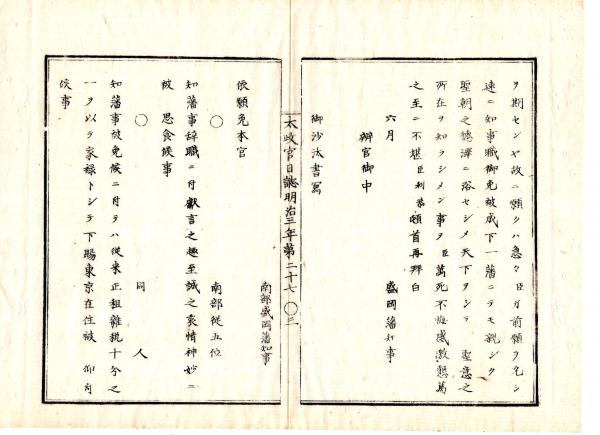 ヲ期センヤ故ニ願クハ急々臣カ前願ヲ允シ
速ニ知事職御免被成下一藩ニテモ親シク
聖朝之徳澤ニ浴セシメ天下ヲシテ 聖意之
所在ヲ知ラシメン事ヲ臣萬死不悔感激懇篤
之至ニ不堪臣利恭頓首再拜白
六月 盛岡藩知事
辨官御中
御沙汰書寫
南部盛岡藩知事
太政官日誌明治三年第二十七 〇二
依願免本官
〇 南部從五位
知藩事辞職ニ付獻言之趣至誠之衷情神妙ニ
被 思食候事
〇 同人
知藩事被免候ニ付テハ従来正租雜税十分之
一ヲ以テ家禄トシテ下賜東京在住被 仰付
候事